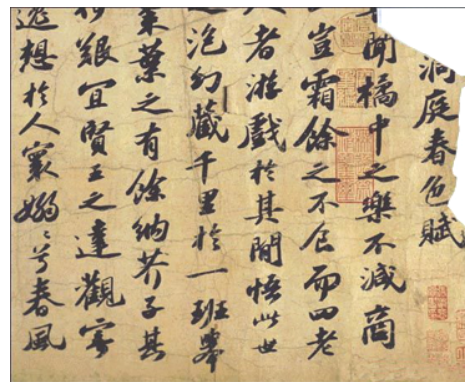 洞庭春色賦
聞橘中之樂不減商
豈霜餘之不食而四老
人者游戲於其間悟此世
泡幻藏千里於一班舉
棗葉之有餘納芥子其
何艱宜賢王之達觀寄
逸想於人寰嫋〻兮春風